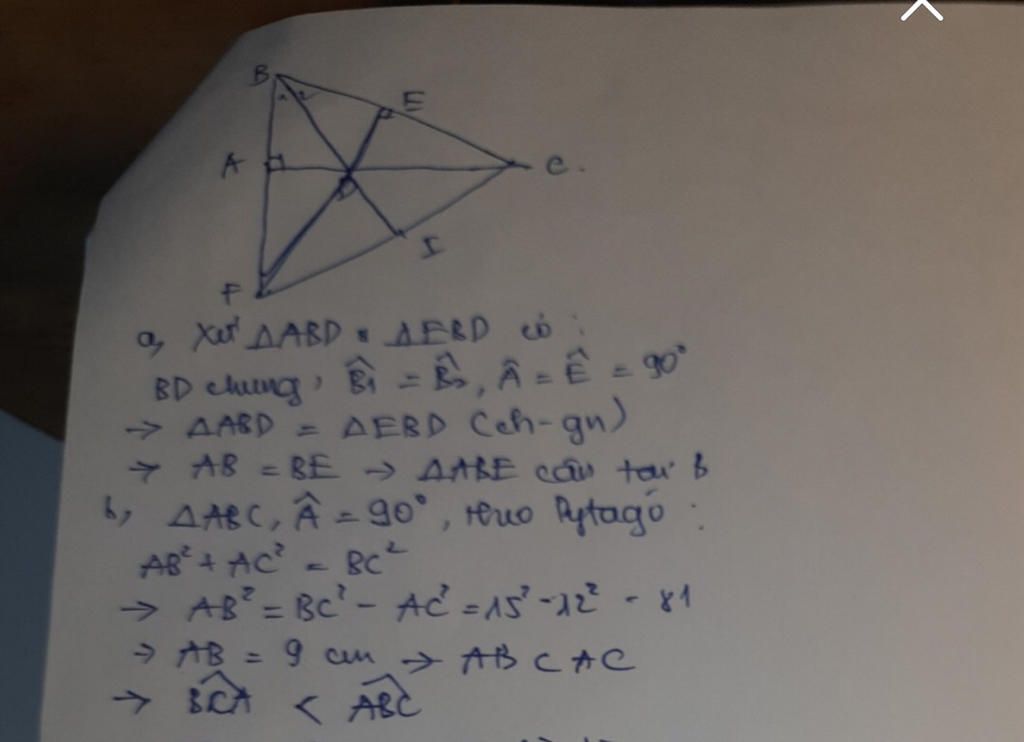 B
1 2
E
A
C.
D
I
F
a, Xét △ABD & △EBD có :
BD chung, B̂1 = B̂2, Â = Ê = 90°
→ △ABD = △EBD (ch-gn)
→ AB = BE → △ABE cân tại B
b, △ABC, Â = 90°, theo Pytago :
AB² + AC² = BC²
→ AB² = BC² - AC² = 15² - 12² = 81
→ AB = 9 cm → AB < AC
→ BCA < ABC